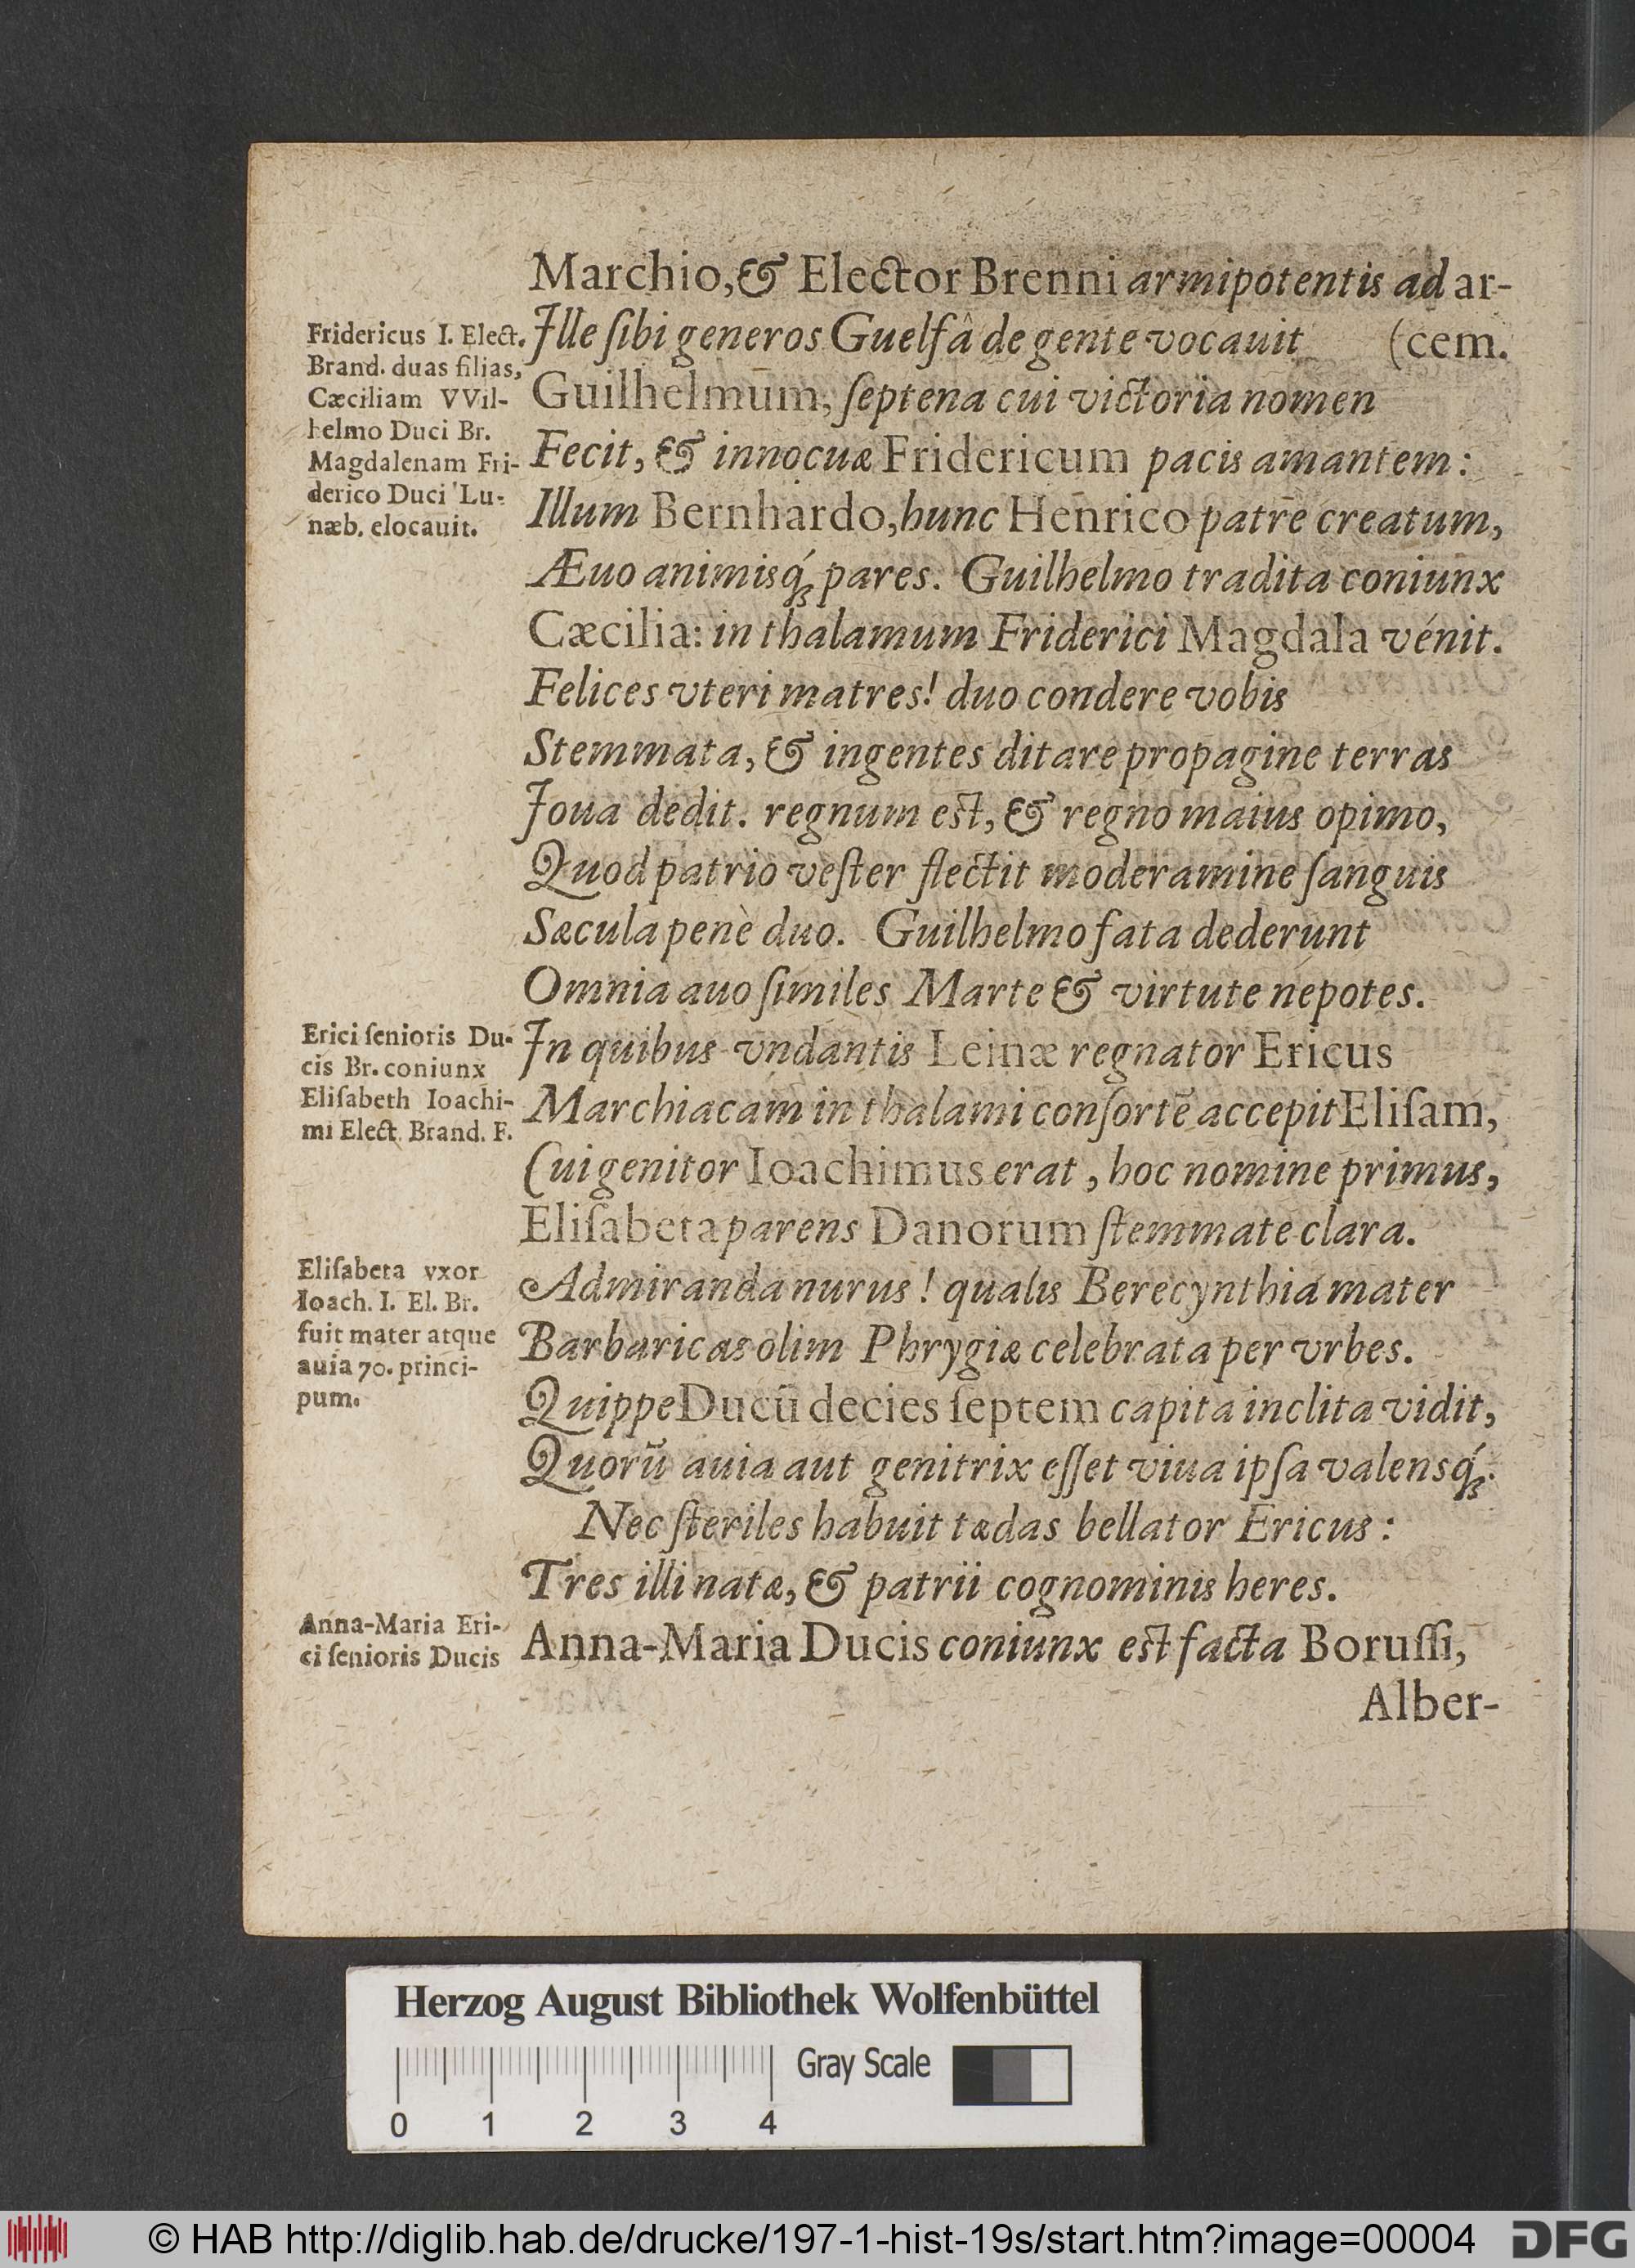 Marchio, & Elector Brenni armipotentis ad ar-
Ille ſibi generos Guelfâ de gente vocauit (cem.
Guilhelmum, ſeptena cui victoria nomen
Fecit, & innocuæ Fridericum pacis amantem:
Illum Bernhardo, hunc Henrico patrē creatum,
Æuo animisq́ꝫ pares. Guilhelmo tradita coniunx
Cæcilia: in thalamum Friderici Magdala vénit.
Felices vteri matres! duo condere vobis
Stemmata, & ingentes ditare propagine terras
Joua dedit. regnum est, & regno maius opimo,
Quod patrio veſter flectit moderamine ſanguis
Sæcula penè duo. Guilhelmo fata dederunt
Omnia auo ſimiles Marte & virtute nepotes.
In quibus vndantis Leinæ regnator Ericus
Marchiacam in thalami conſortē accepit Eliſam,
Cui genitor Ioachimus erat, hoc nomine primus,
Eliſabeta parens Danorum ſtemmate clara.
Admiranda nurus! qualis Berecynthia mater
Barbaricas olim Phrygiæ celebrata per vrbes.
Quippe Ducū decies ſeptem capita inclita vidit,
Quorū auia aut genitrix eſſet viua ipſa valensq́ꝫ.
Nec ſteriles habuit tædas bellator Ericus:
Tres illi natæ, & patrii cognominis heres.
Anna-Maria Ducis coniunx est facta Boruſſi,
Alber-
Fridericus I. Elect.
Brand. duas filias,
Cæciliam VVil-
helmo Duci Br.
Magdalenam Fri-
derico Duci Lu-
næb. elocauit.
Erici ſenioris Du-
cis Br. coniunx
Eliſabeth Ioachi-
mi Elect. Brand. F.
Eliſabeta vxor
Ioach. I. El. Br.
fuit mater atque
auia 70. princi-
pum.
Anna-Maria Eri-
ci ſenioris Ducis
Herzog August Bibliothek Wolfenbüttel
Gray Scale
0 1 2 3 4
© HAB http://diglib.hab.de/drucke/197-1-hist-19s/start.htm?image=00004
DFG